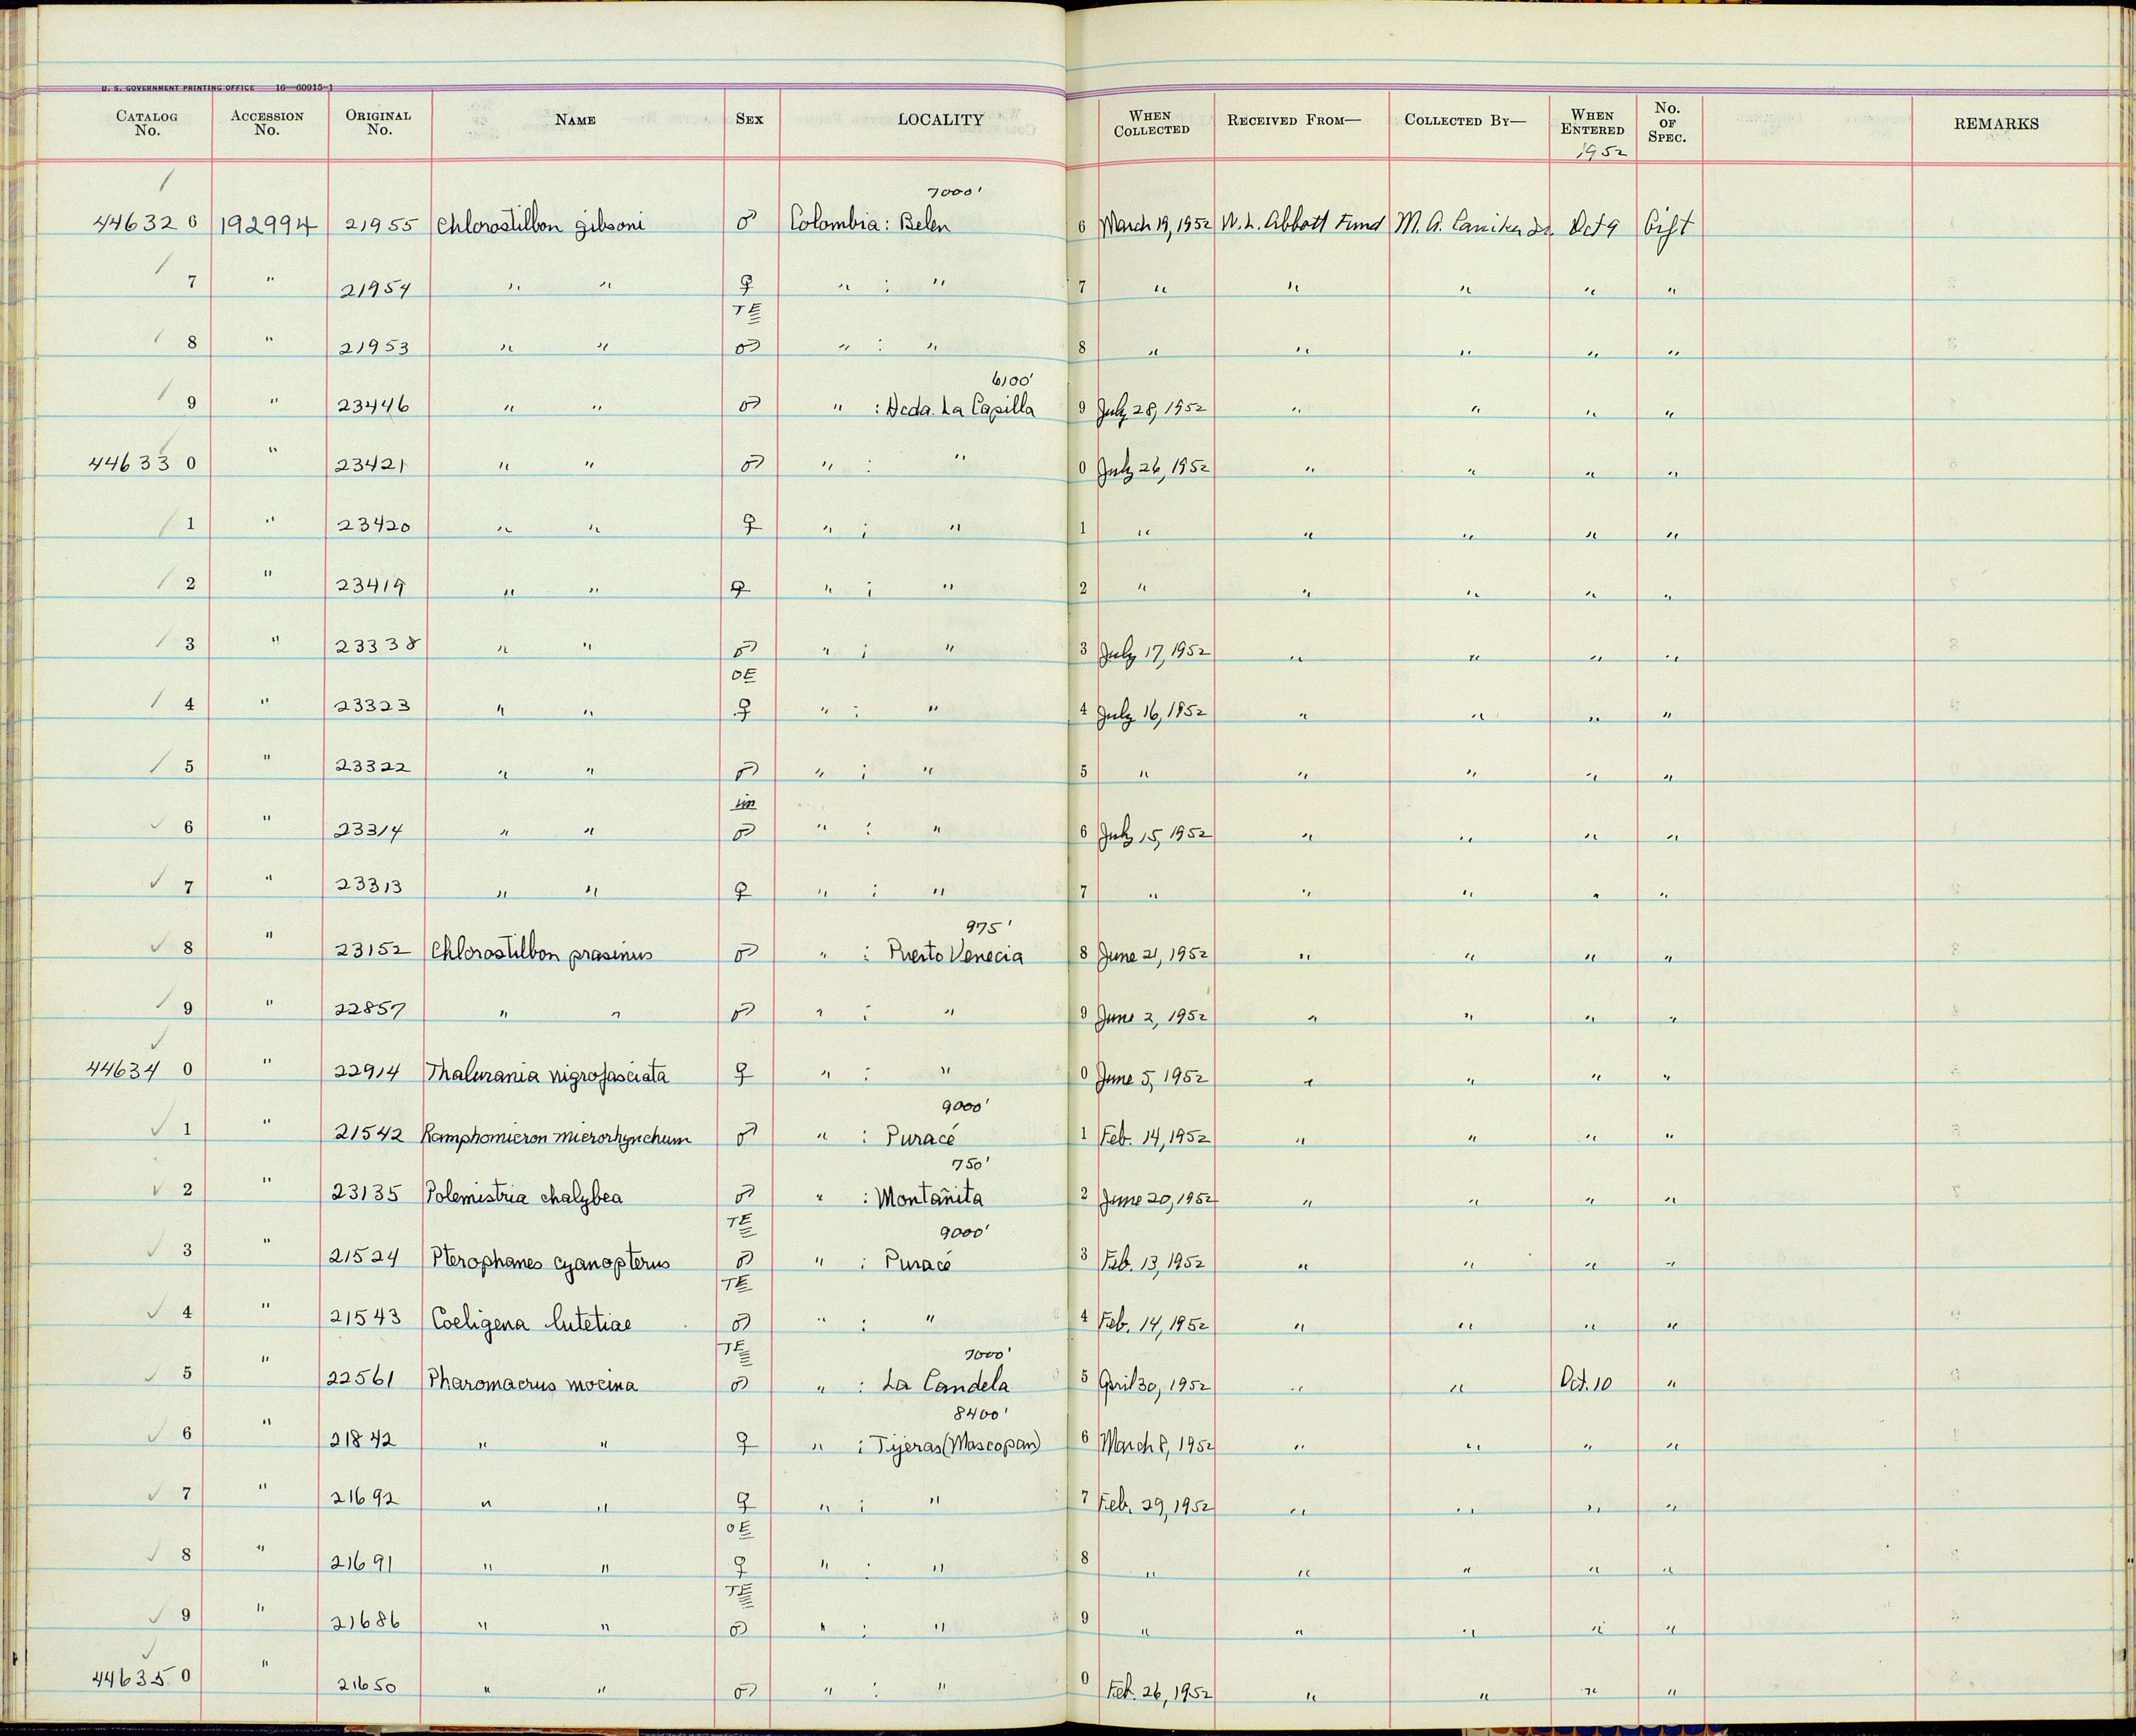 U. S. GOVERNMENT PRINTING OFFICE 16—60915-1
CATALOG No. ACCESSION No. ORIGINAL No. NAME SEX LOCALITY WHEN COLLECTED RECEIVED FROM— COLLECTED BY— WHEN ENTERED No. OF SPEC. REMARKS
1952
7000'
44632 6 192994 21955 Chlorostilbon gibsoni ♂ Colombia: Belen 6 March 19, 1952 W. L. Abbott Fund M. A. Carriker Jr. Oct 9 Gift
7 " 21954 " " ♀ " : " 7 " " " " "
TE
8 " 21953 " " ♂ " : " 8 " " " " "
6100'
9 " 23446 " " ♂ " : Hcda. La Capilla 9 July 28, 1952 " " " "
44633 0 " 23421 " " ♂ " : " 0 July 26, 1952 " " " "
1 " 23420 " " ♀ " : " 1 " " " " "
2 " 23419 " " ♀ " : " 2 " " " " "
3 " 23338 " " ♂ " : " 3 July 17, 1952 " " " "
OE
4 " 23323 " " ♀ " : " 4 July 16, 1952 " " " "
5 " 23322 " " ♂ " : " 5 " " " " "
im
6 " 23314 " " ♂ " : " 6 July 15, 1952 " " " "
7 " 23313 " " ♀ " : " 7 " " " " "
975'
8 " 23152 Chlorostilbon prasinus ♂ " : Puerto Venecia 8 June 21, 1952 " " " "
9 " 22857 " " ♂ " : " 9 June 2, 1952 " " " "
44634 0 " 22914 Thalurania nigrofasciata ♀ " : " 0 June 5, 1952 " " " "
9000'
1 " 21542 Ramphomicron microrhynchum ♂ " : Puracé 1 Feb. 14, 1952 " " " "
750'
2 " 23135 Polemistria chalybea ♂ " : Montañita 2 June 20, 1952 " " " "
TE 9000'
3 " 21524 Pterophanes cyanopterus ♂ " : Puracé 3 Feb. 13, 1952 " " " "
TE
4 " 21543 Coeligena lutetiae ♂ " : " 4 Feb. 14, 1952 " " " "
TE 7000'
5 " 22561 Pharomacrus mocina ♂ " : La Candela 5 April 30, 1952 " " Oct. 10 "
8400'
6 " 21842 " " ♀ " : Tijeras (Moscopan) 6 March 8, 1952 " " " "
7 " 21692 " " ♀ " : " 7 Feb. 29, 1952 " " " "
OE
8 " 21691 " " ♀ " : " 8 " " " " "
TE
9 " 21686 " " ♂ " : " 9 " " " " "
44635 0 " 21650 " " ♂ " : " 0 Feb. 26, 1952 " " " "